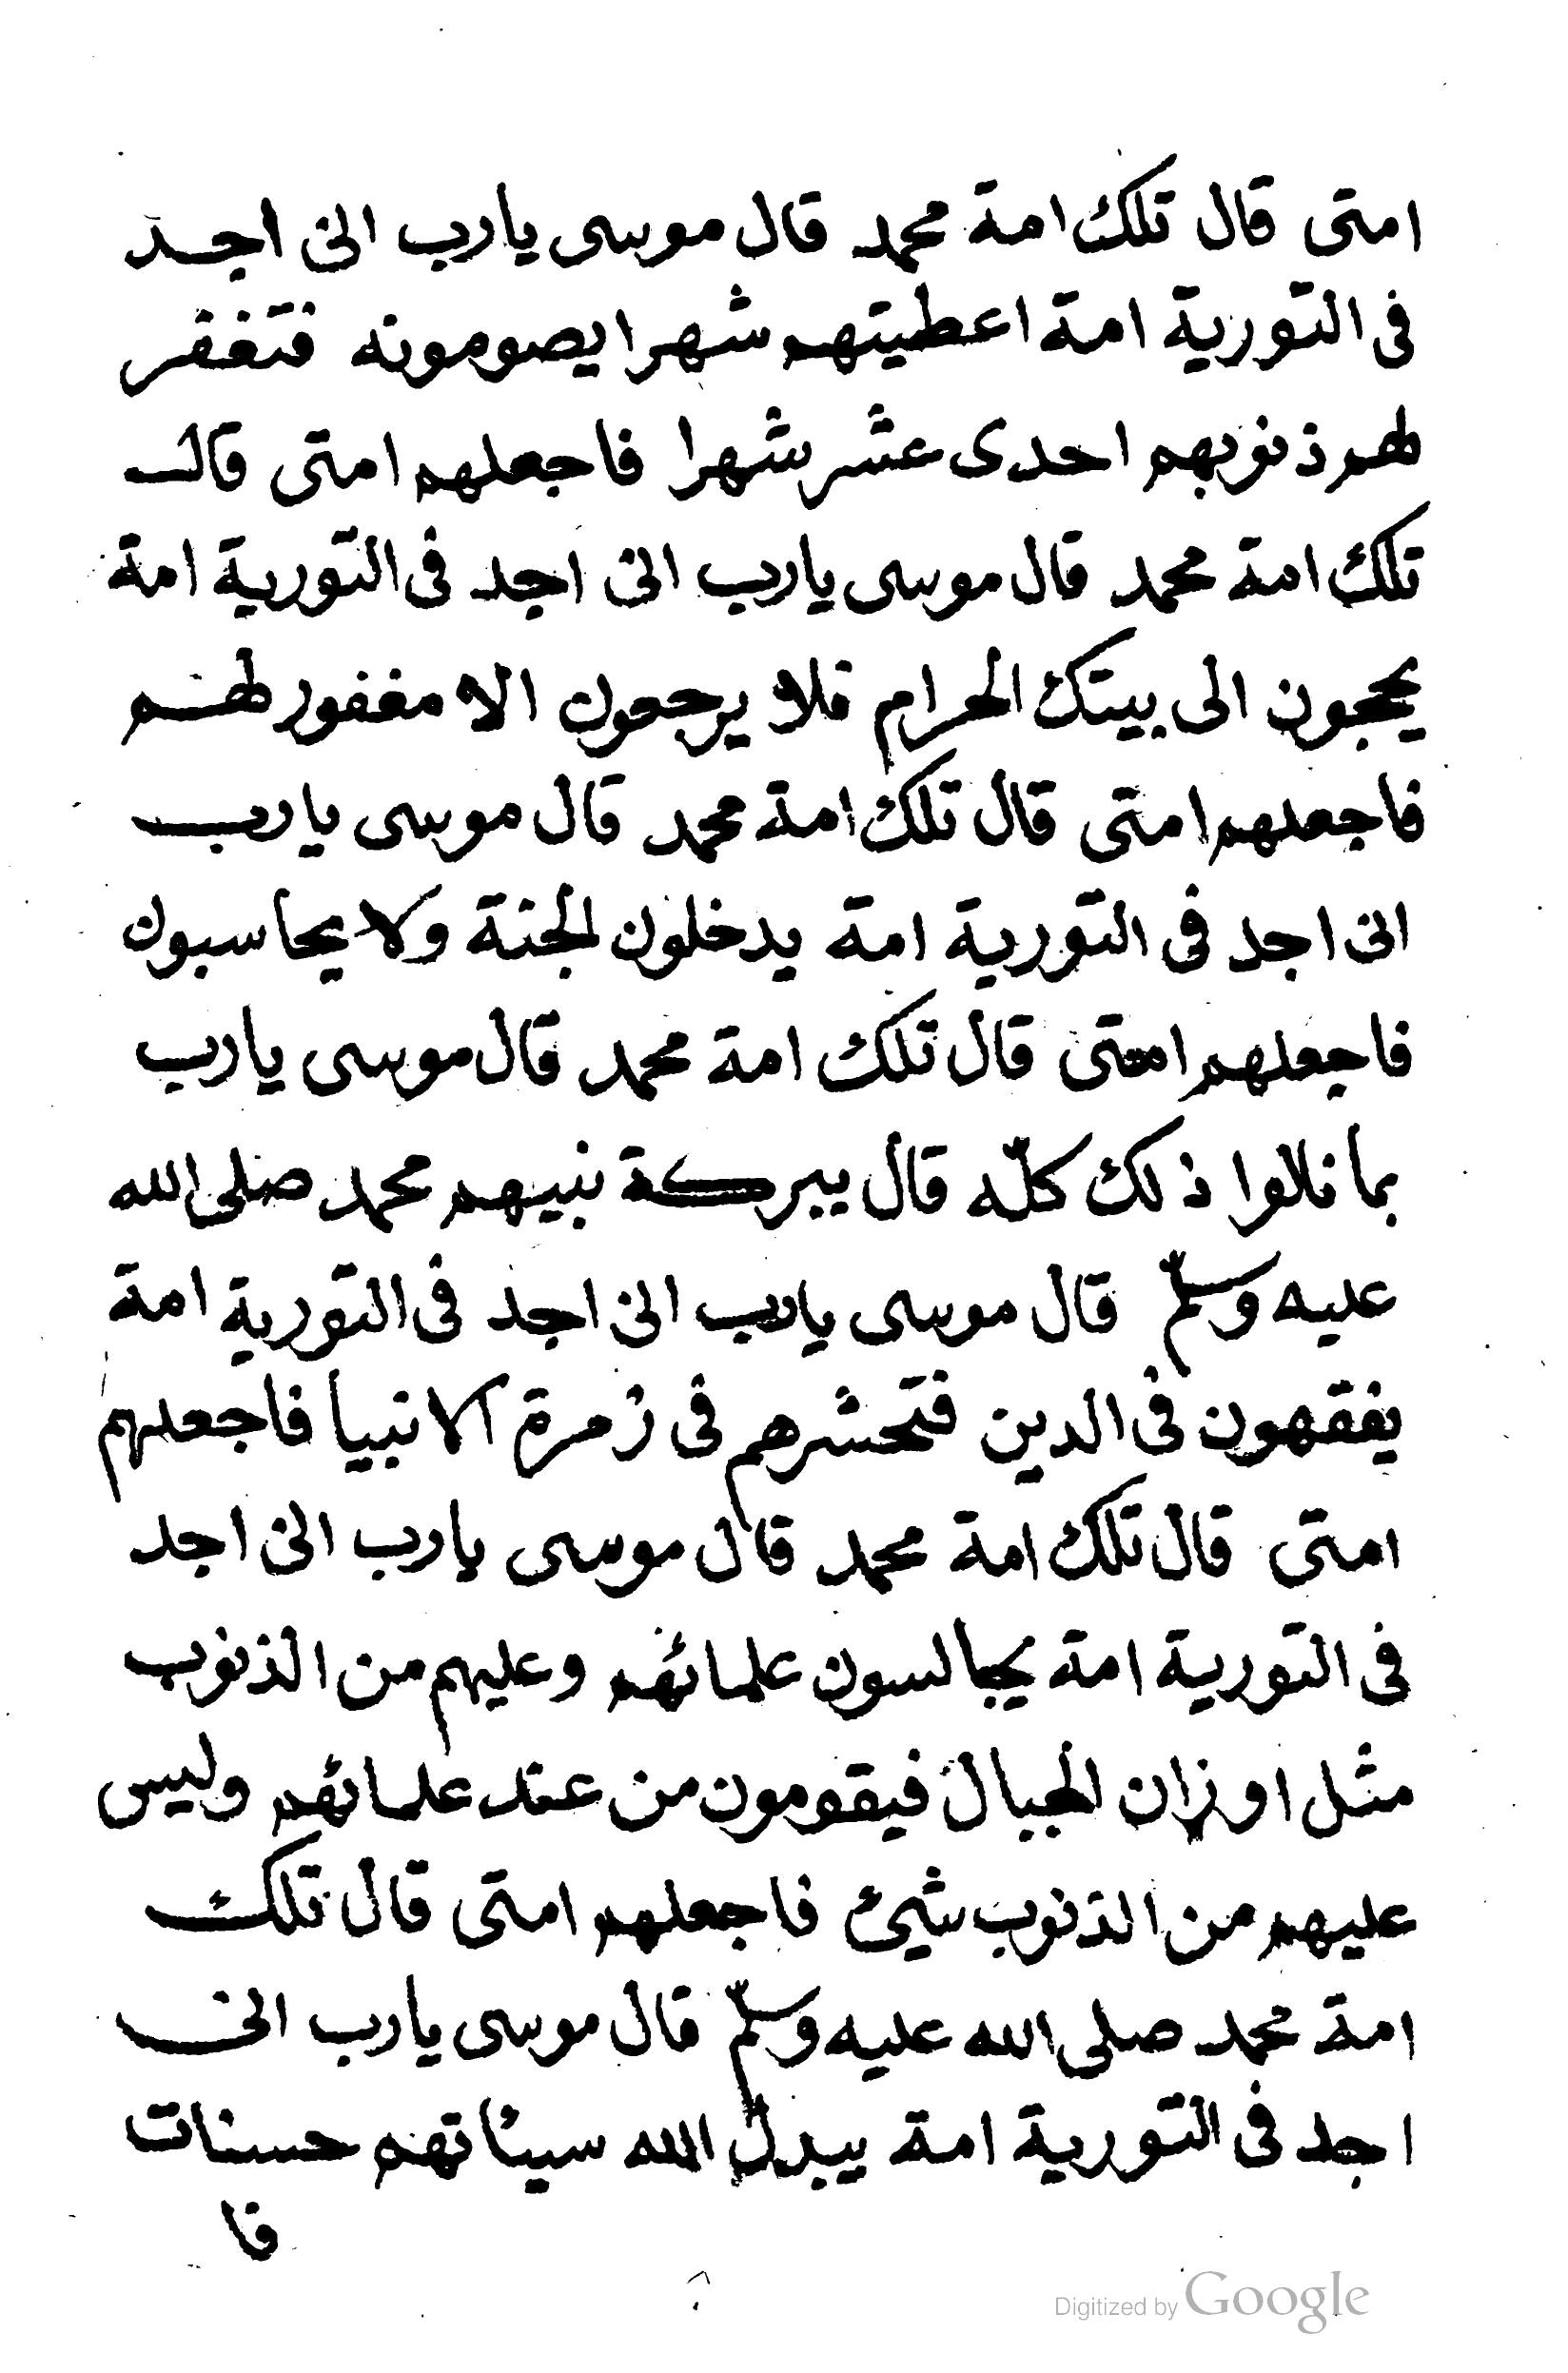 امتى قال تلك امة محمد قال موسى يارب انى اجد
فى التورية امة اعطيتهم شهرا يصومونه فتغفر
لهم ذنوبهم احدى عشر شهرا فاجعلهم امتى قال
تلك امة محمد قال موسى يارب انى اجد فى التورية امة
يحجون الى بيتك الحرام فلا يرجعون الا مغفور لهم
فاجعلهم امتى قال تلك امة محمد قال موسى يارب
انى اجد فى التورية امة يدخلون الجنة ولا يحاسبون
فاجعلهم امتى قال تلك امة محمد قال موسى يارب
بما نالوا ذلك كلّه قال ببركة نبيهم محمد صلى الله
عليه وسلّم قال موسى يارب انى اجد فى التورية امة
يفقهون فى الدين فتحشرهم فى زمرة الانبيا فاجعلهم
امتى قال تلك امة محمد قال موسى يارب انى اجد
فى التورية امة يجالسون علمائهم وعليهم من الذنوب
مثل اوزان الجبال فيقومون من عند علمائهم وليس
عليهم من الذنوب شيئ فاجعلهم امتى قال تلك
امة محمد صلى الله عليه وسلّم قال موسى يارب انى
اجد فى التورية امة يبدل الله سيئاتهم حسنات
فا
Digitized by Google